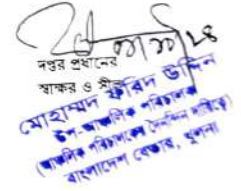 দপ্তর প্রধানের
স্বাক্ষর ও সীল
মোহাম্মদ ফরিদ উদ্দিন
উপ-আঞ্চলিক পরিচালক
(আঞ্চলিক পরিচালকের দৈনন্দিন দায়িত্বে)
বাংলাদেশ বেতার, খুলনা